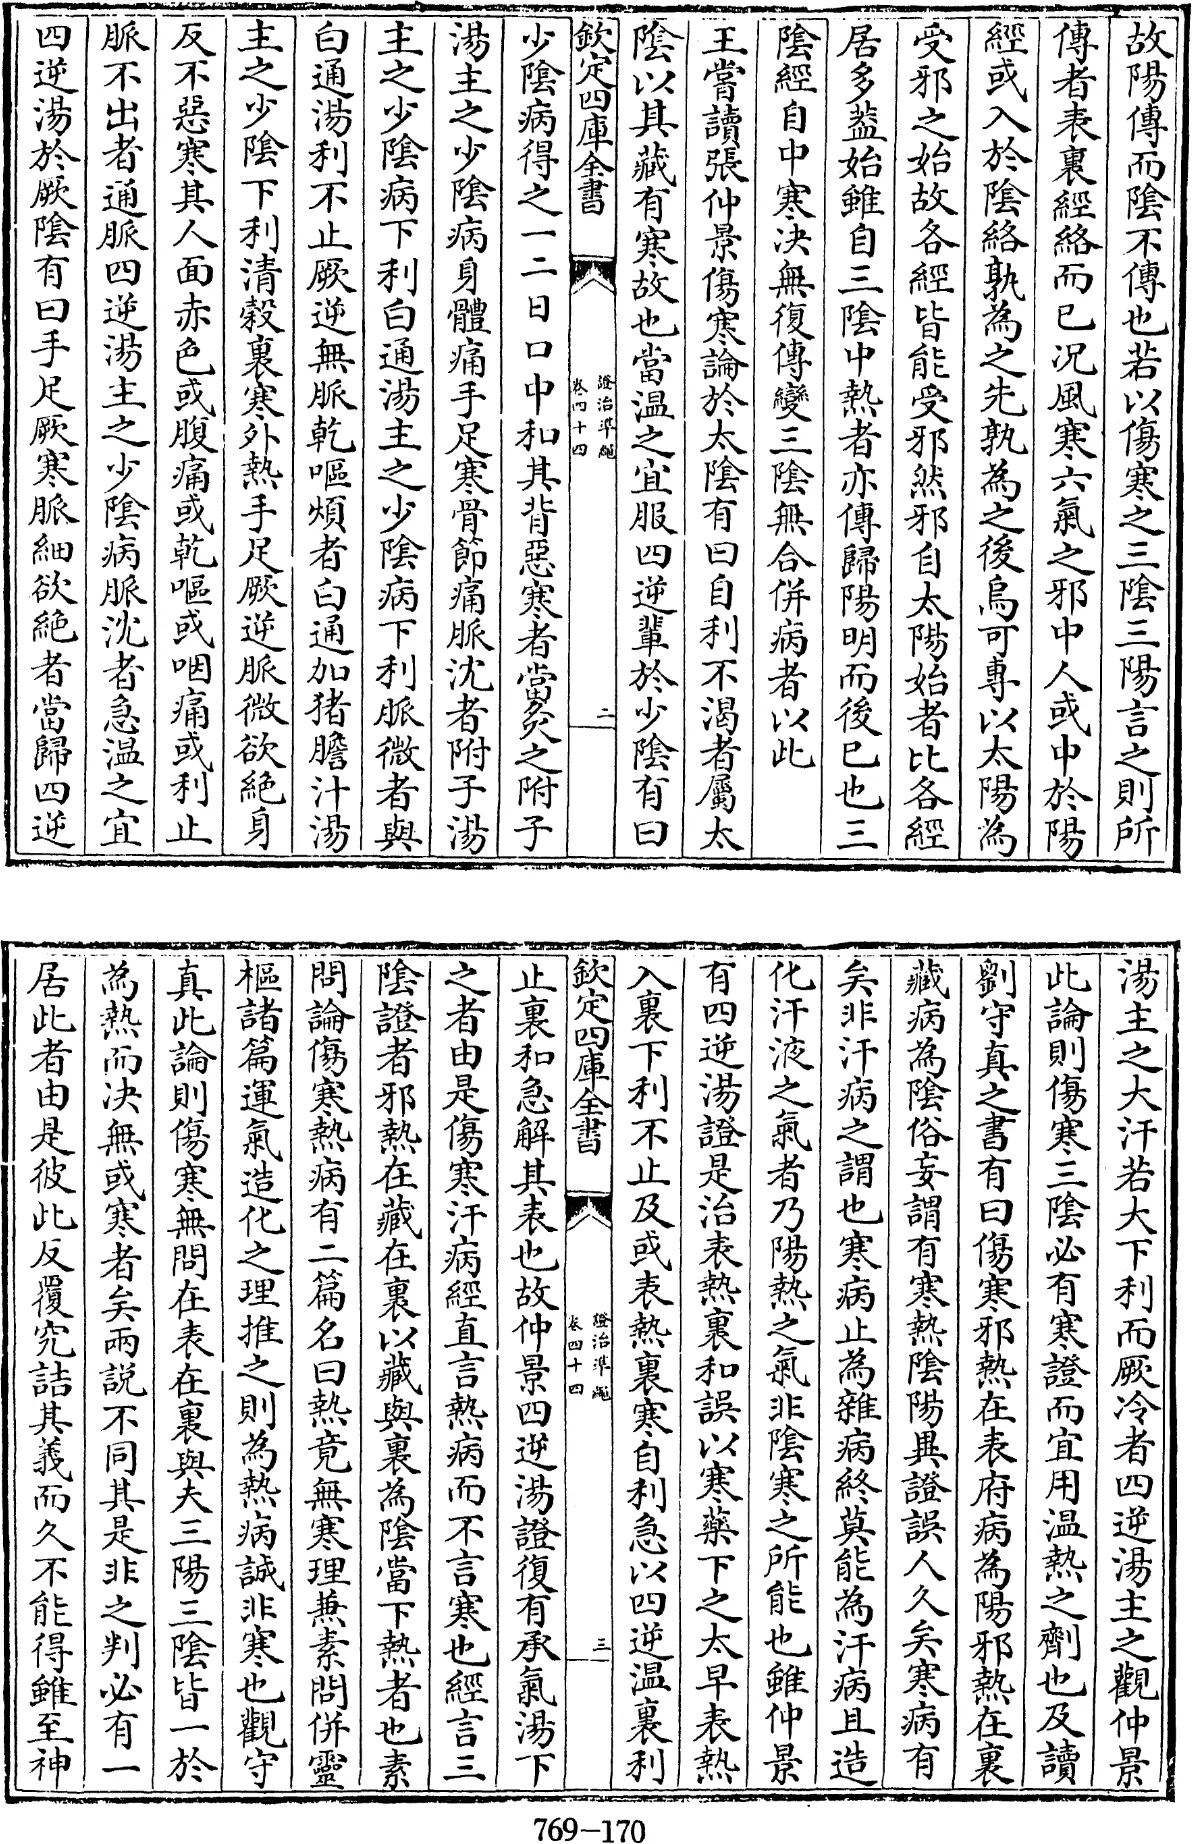 故陽傳而陰不傳也若以傷寒之三陰三陽言之則所
傳者表裏經絡而已况風寒六氣之邪中人或中於陽
經或入於陰絡孰為之先孰為之後烏可專以太陽為
受邪之始故各經皆能受邪然邪自太陽始者比各經
居多葢始雖自三陰中熱者亦傳歸陽明而後已也三
陰經自中寒決無復傳變三陰無合併病者以此
王嘗讀張仲景傷寒論於太陰有曰自利不渴者屬太
陰以其藏有寒故也當温之宜服四逆輩於少陰有曰
欽定四庫全書
證治準繩
卷四十四
二
少陰病得之一二日口中和其背惡寒者當灸之附子
湯主之少陰病身體痛手足寒骨節痛脈沈者附子湯
主之少陰病下利白通湯主之少陰病下利脈微者與
白通湯利不止厥逆無脈乾嘔煩者白通加猪膽汁湯
主之少陰下利清穀裏寒外熱手足厥逆脈微欲絕身
反不惡寒其人面赤色或腹痛或乾嘔或咽痛或利止
脈不出者通脈四逆湯主之少陰病脈沈者急温之宜
四逆湯於厥陰有曰手足厥寒脈細欲絕者當歸四逆
湯主之大汗若大下利而厥冷者四逆湯主之觀仲景
此論則傷寒三陰必有寒證而宜用温熱之劑也及讀
劉守真之書有曰傷寒邪熱在表府病為陽邪熱在裏
藏病為陰俗妄謂有寒熱陰陽異證誤人久矣寒病有
矣非汗病之謂也寒病止為雜病終莫能為汗病且造
化汗液之氣者乃陽熱之氣非陰寒之所能也雖仲景
有四逆湯證是治表熱裏和誤以寒藥下之太早表熱
入裏下利不止及或表熱裏寒自利急以四逆温裏利
欽定四庫全書
證治準繩
卷四十四
三
止裏和急解其表也故仲景四逆湯證復有承氣湯下
之者由是傷寒汗病經直言熱病而不言寒也經言三
陰證者邪熱在藏在裏以藏與裏為陰當下熱者也素
問論傷寒熱病有二篇名曰熱竟無寒理兼素問併靈
樞諸篇運氣造化之理推之則為熱病誠非寒也觀守
真此論則傷寒無問在表在裏與夫三陽三陰皆一於
為熱而決無或寒者矣兩説不同其是非之判必有一
居此者由是彼此反覆究詰其義而久不能得雖至神
769-170